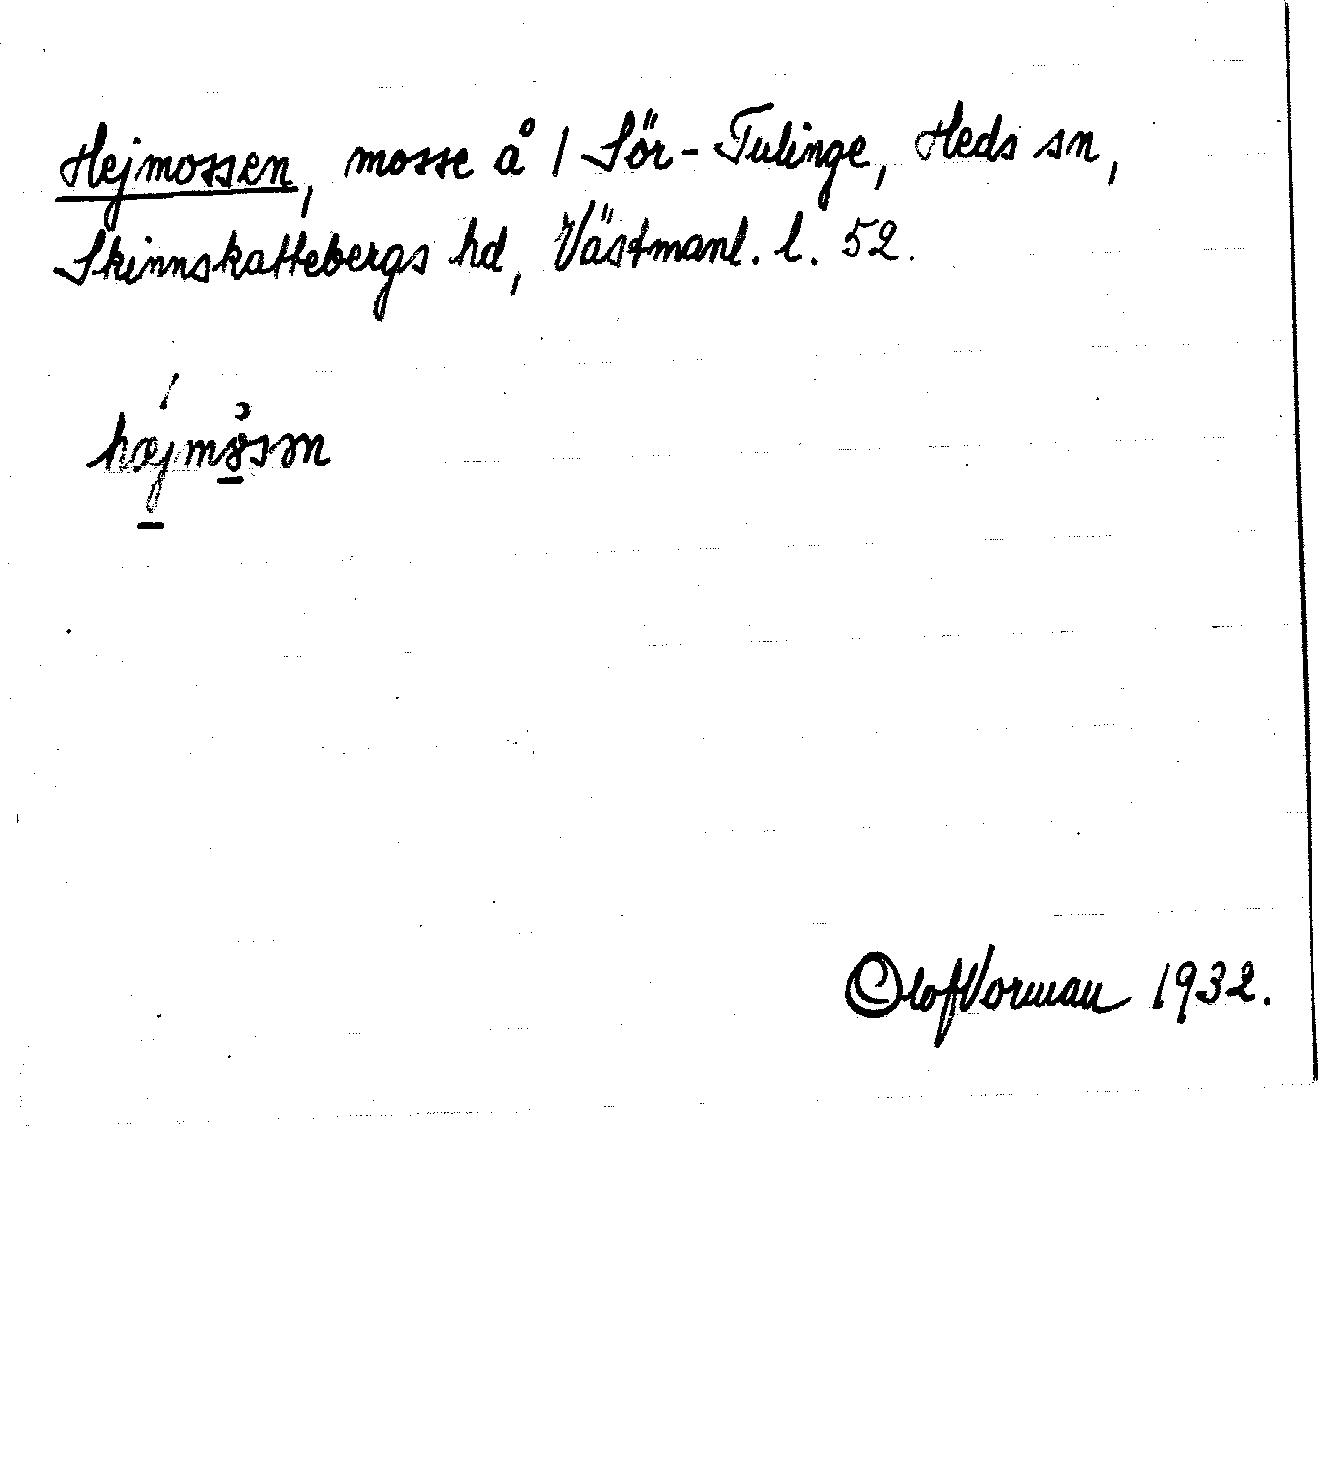 Hejmossen, mosse å 1 Sör-Tulinge, Heds sn,
Skinnskattebergs hd, Västmanl. l. 52.
Olof Norman 1932.